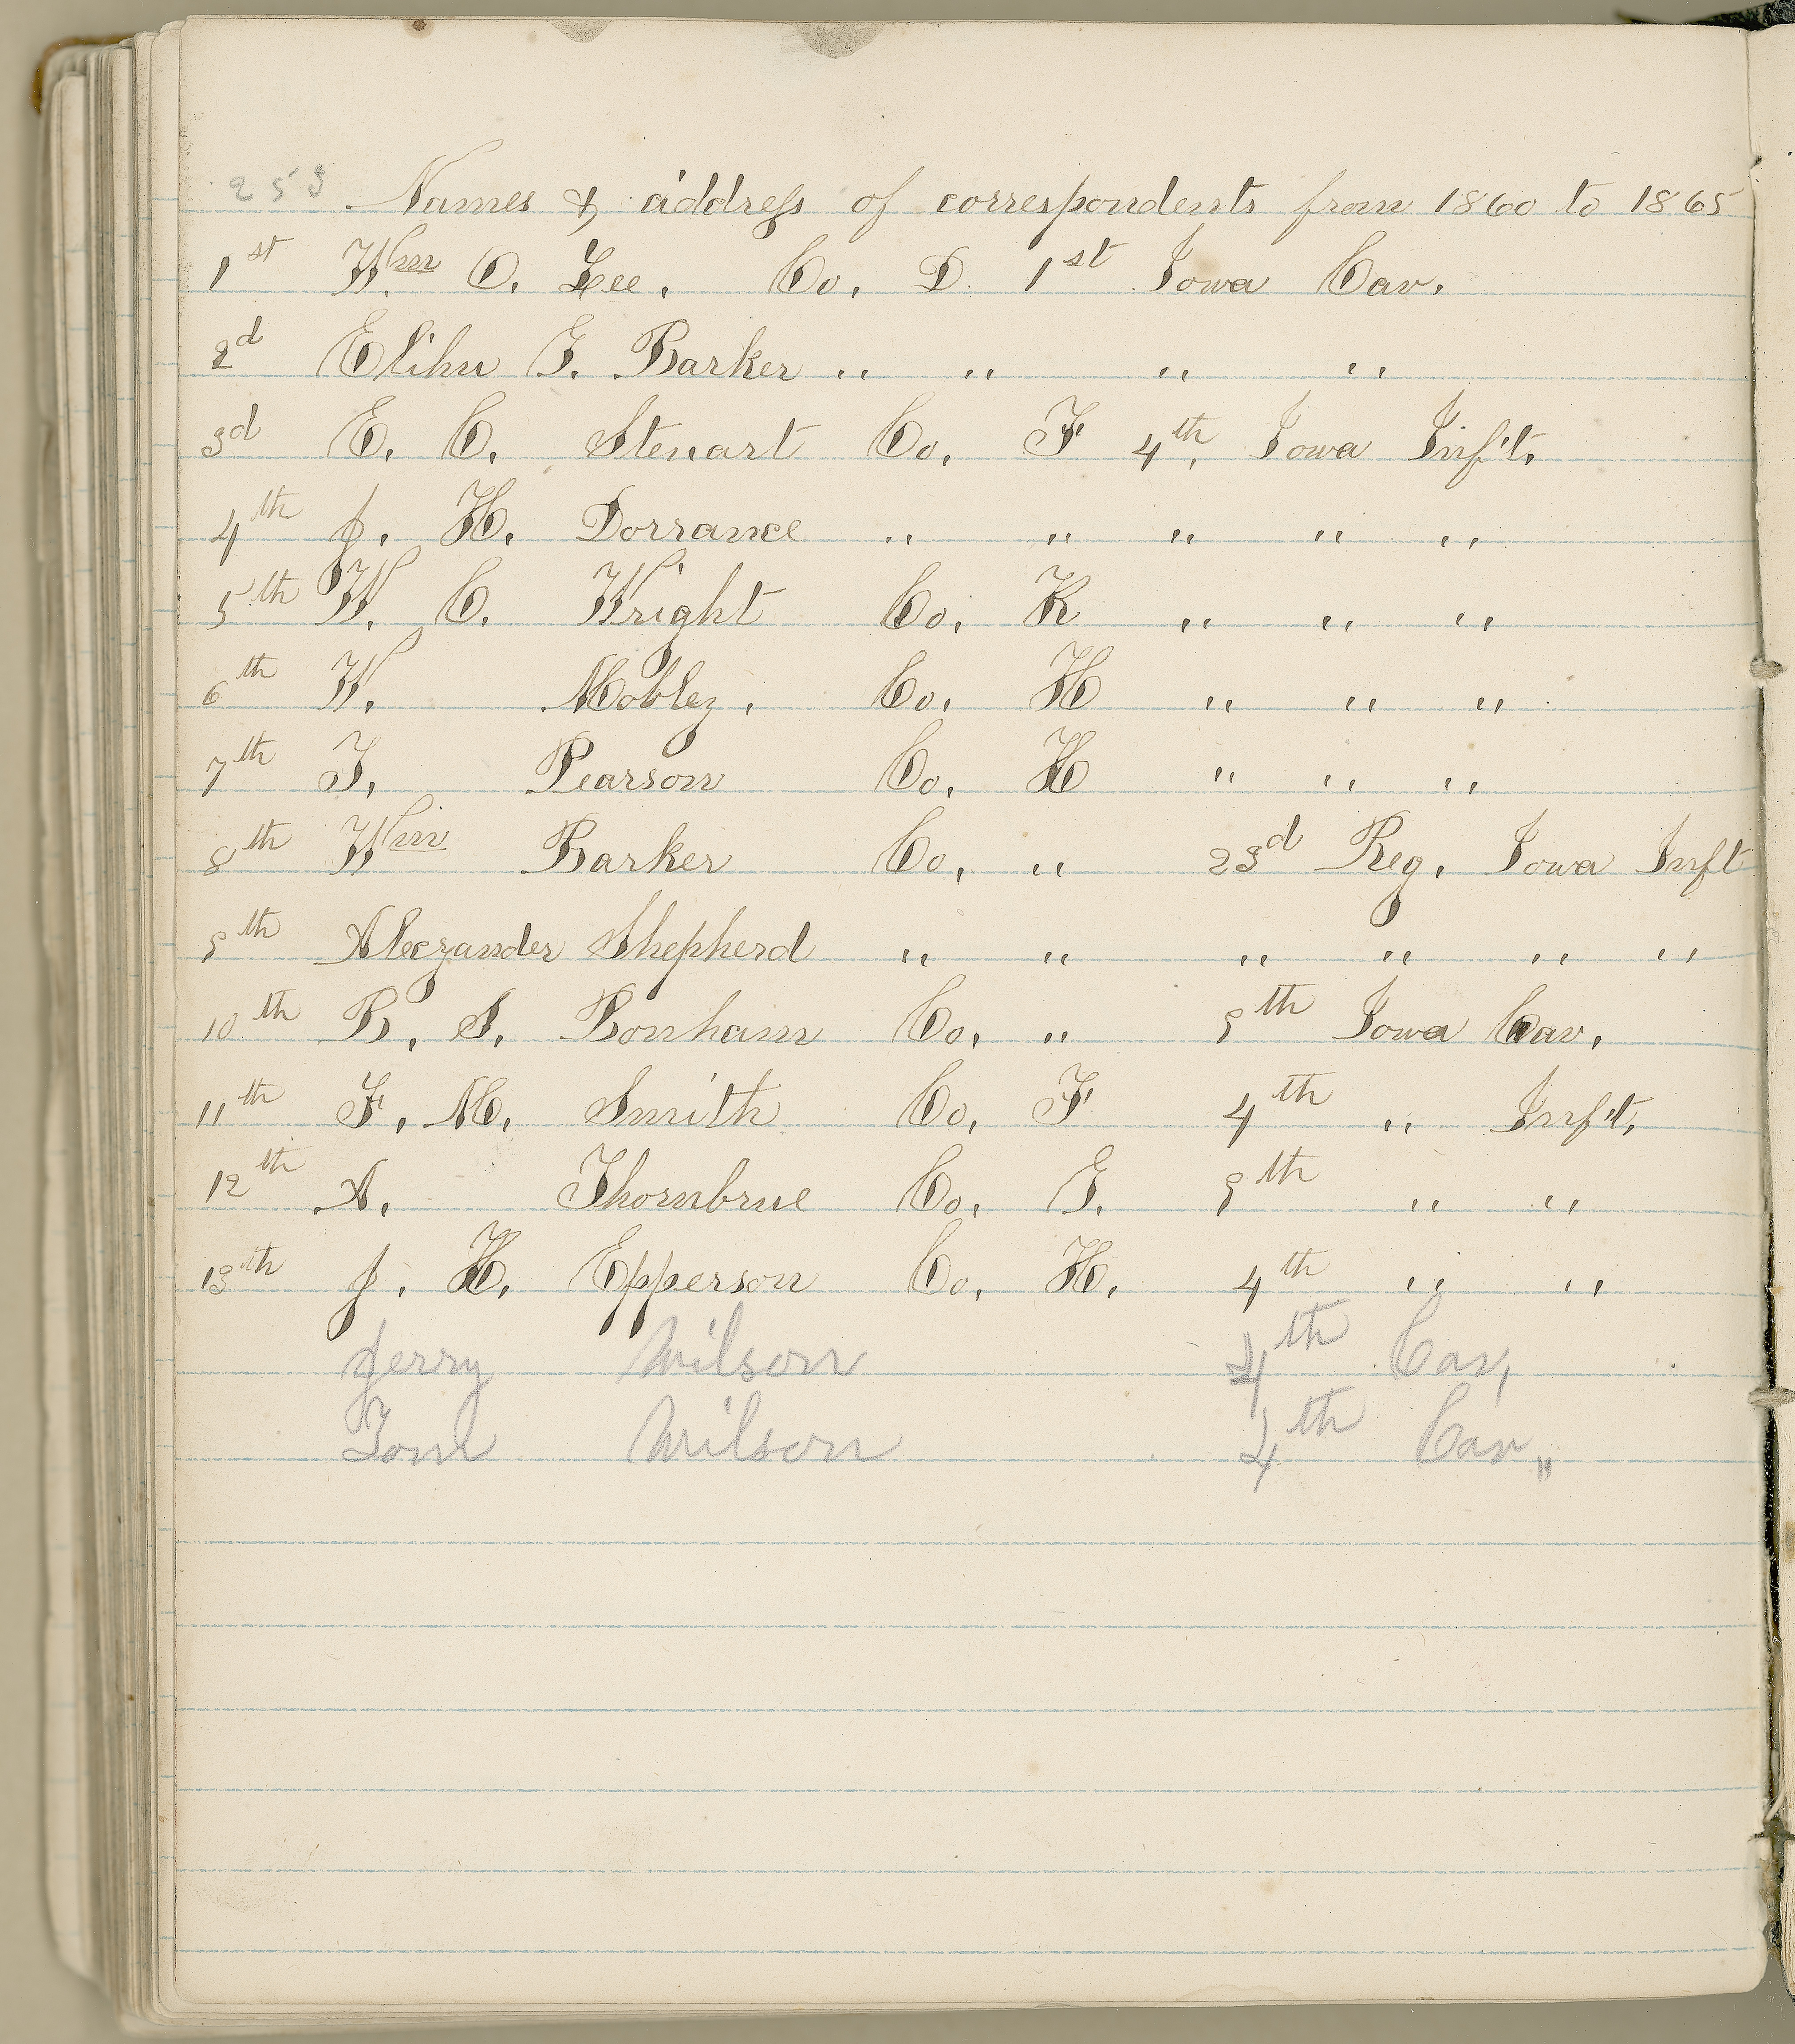 253 Names & address of correspondents from 1860 to 1865
1st Wm O. Lee, Co, D. 1st Iowa Cav,
2d Elihu G. Barker " " " "
3d E. C. Stewart Co, F 4th, Iowa Inf't,
4th J. H. Dorrance " " " " "
5th W. C. Wright Co, K " " "
6th W. Mobley, Co, H " " "
7th T, Pearson Co, H " " "
8th Wm Barker Co, " 23d Reg, Iowa Inft
9th Alexander Shepherd " " " " " "
10th B, S, Bonham Co, " 9th Iowa Cav,
11th F, M, Smith Co, F 4th " Inf't,
12th A, Thornbrue Co, G. 9th " "
13th J. H, Epperson Co, H, 4th " "
Jerry Wilson 4th Cav,
Tom Wilson 4th Cav,,